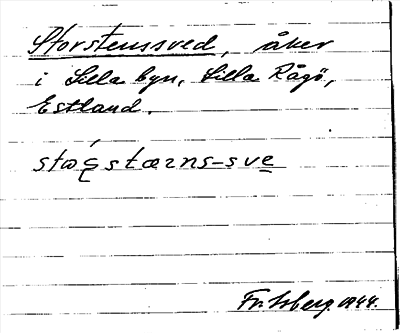 Storstenssved, åker
i Lilla byn, Lilla Rågö,
Estland.
stæꞬstærns-sve
Fr. Isberg. 1944.